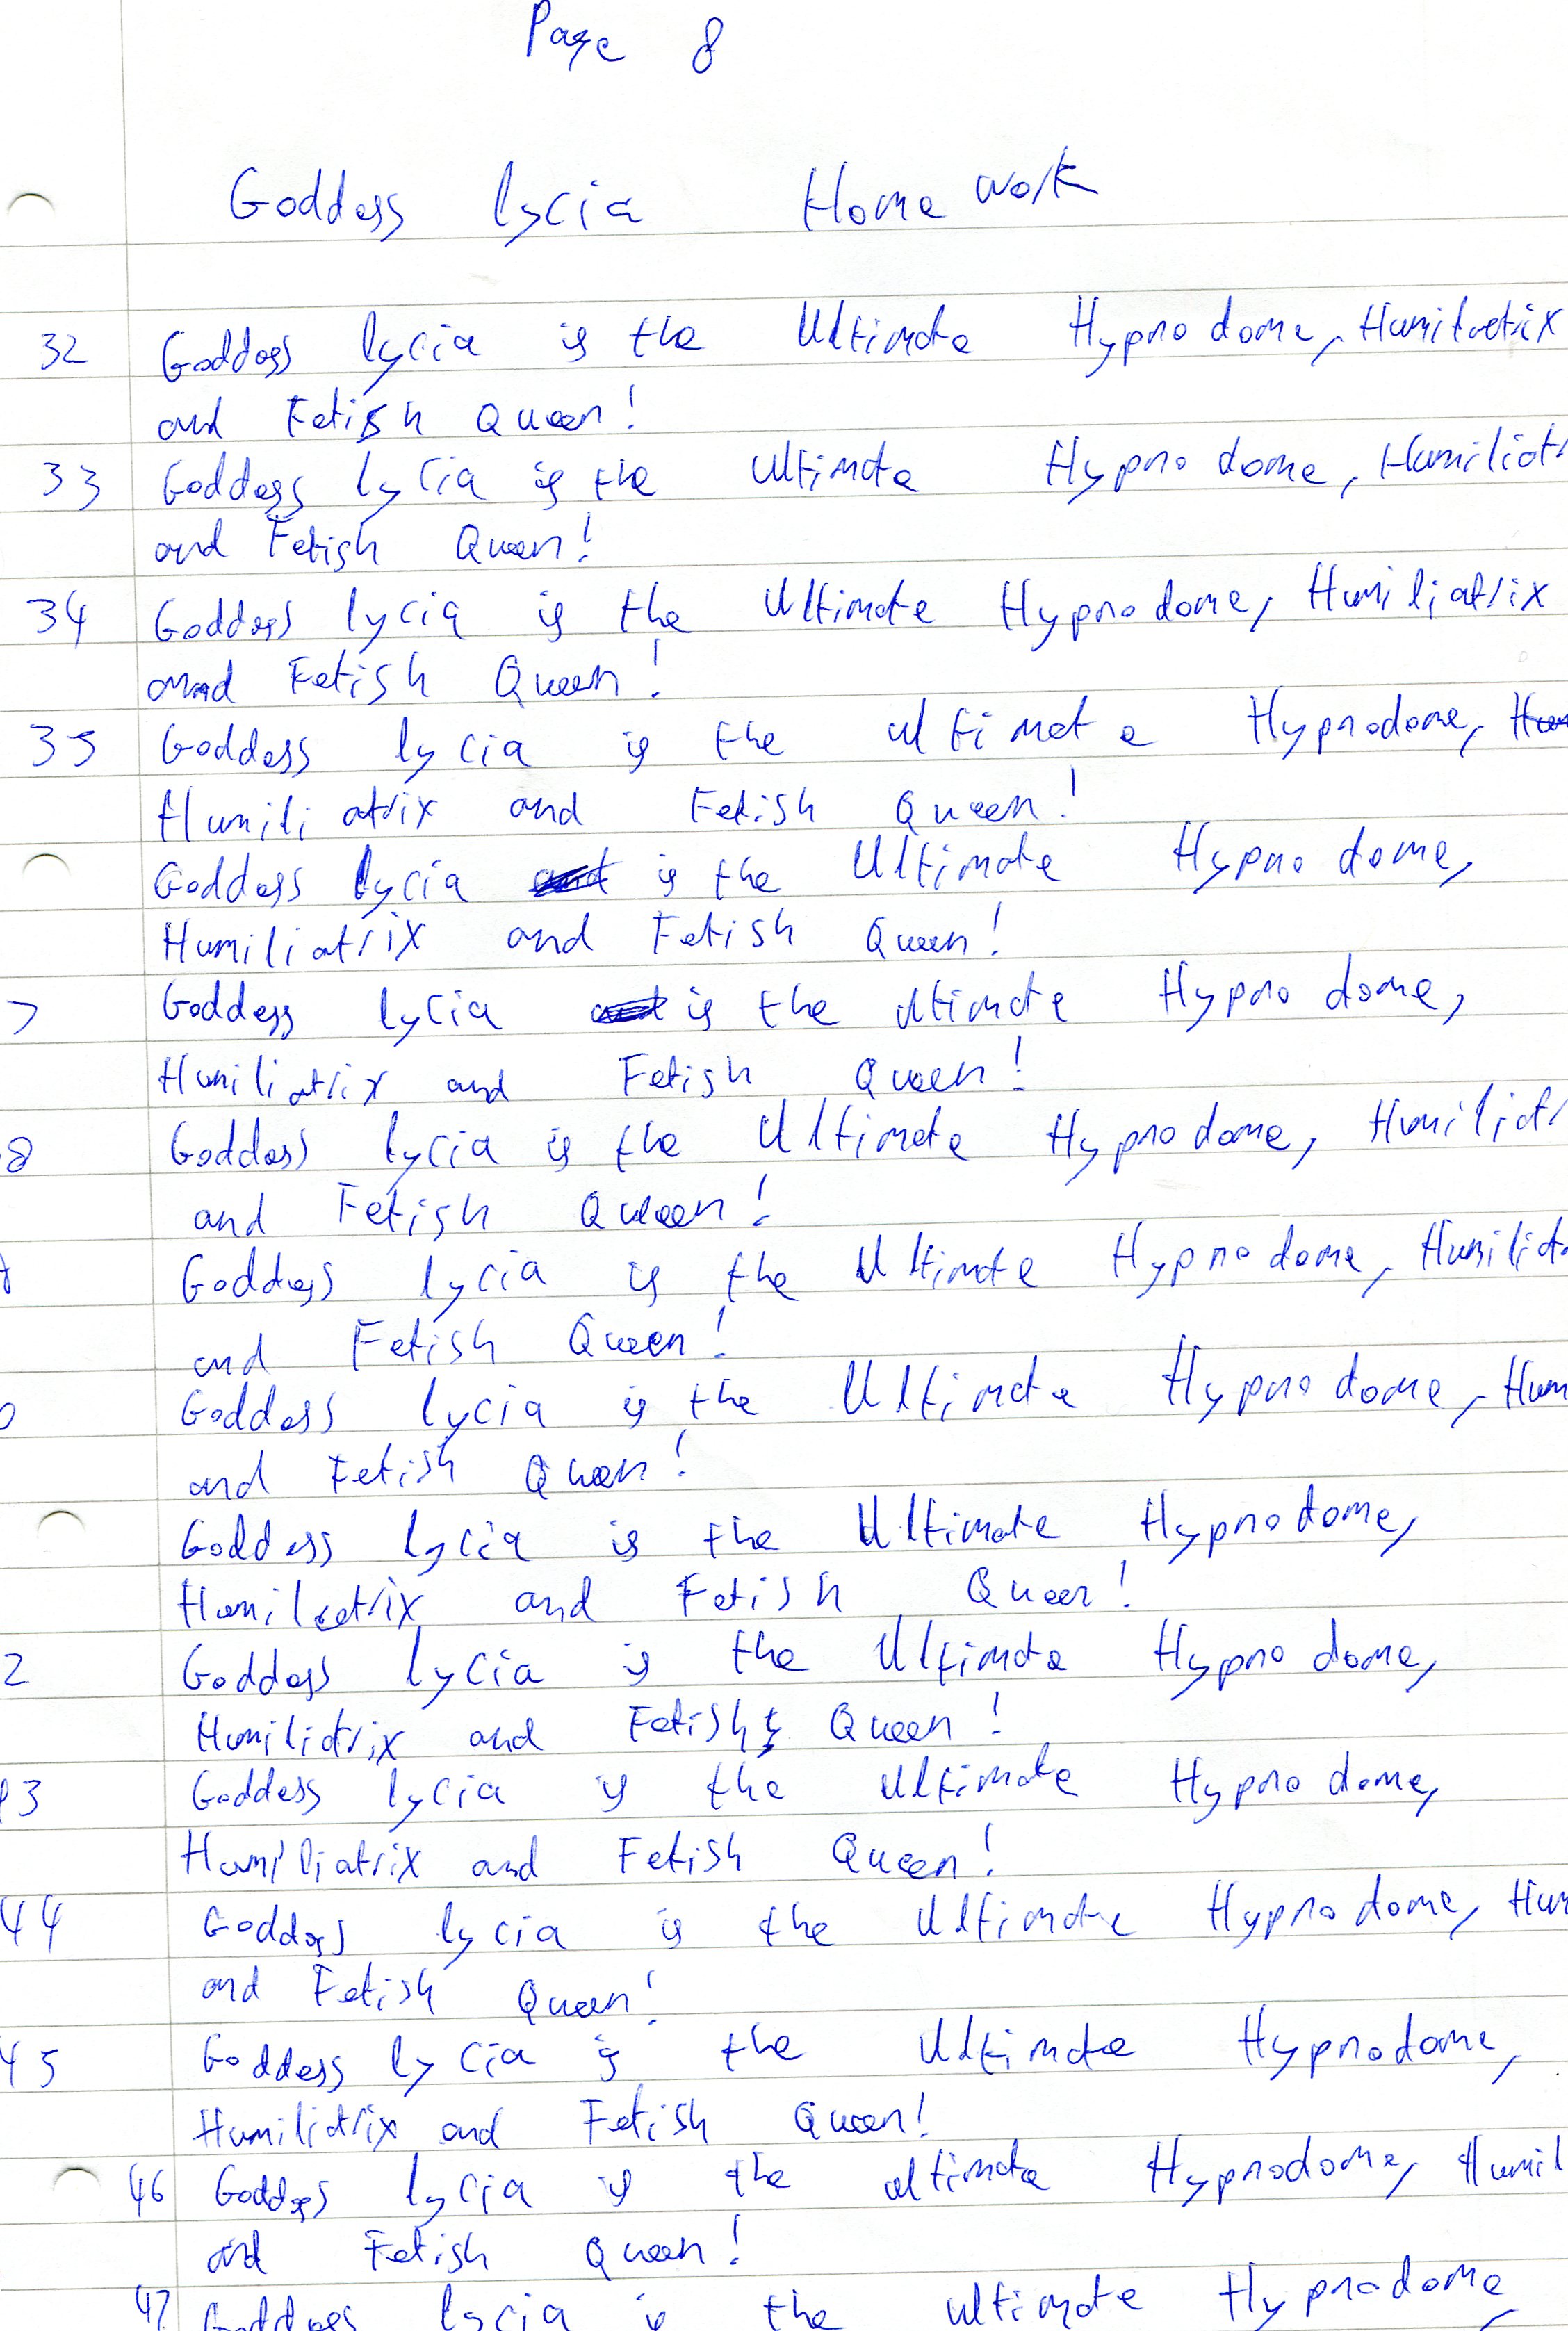 Page 8
Goddess lycia Homework
32 Goddess lycia is the Ultimate Hypnodome, Humiliatrix
and Fetish Queen!
33 Goddess lycia is the Ultimate Hypnodome, Humiliatr
and Fetish Queen!
34 Goddess lycia is the Ultimate Hypnodome, Humiliatrix
and Fetish Queen!
35 Goddess lycia is the ultimate Hypnodome,
Humiliatrix and Fetish Queen!
Goddess lycia is the Ultimate Hypnodome,
Humiliatrix and Fetish Queen!
7 Goddess lycia is the ultimate Hypnodome,
Humiliatrix and Fetish Queen!
8 Goddess lycia is the Ultimate Hypnodome, Humiliatr
and Fetish Queen!
Goddess lycia is the Ultimate Hypnodome, Humiliat
and Fetish Queen!
0 Goddess lycia is the Ultimate Hypnodome, Hum
and Fetish Queen!
Goddess lycia is the Ultimate Hypnodome,
Humiliatrix and Fetish Queen!
2 Goddess lycia is the Ultimate Hypnodome,
Humiliatrix and Fetish Queen!
43 Goddess lycia is the Ultimate Hypnodome,
Humiliatrix and Fetish Queen!
44 Goddess lycia is the Ultimate Hypnodome, Hum
and Fetish Queen!
45 Goddess lycia is the Ultimate Hypnodome,
Humiliatrix and Fetish Queen!
46 Goddess lycia is the ultimate Hypnodome, Humil
and Fetish Queen!
47 Goddess lycia is the ultimate Hypnodome,